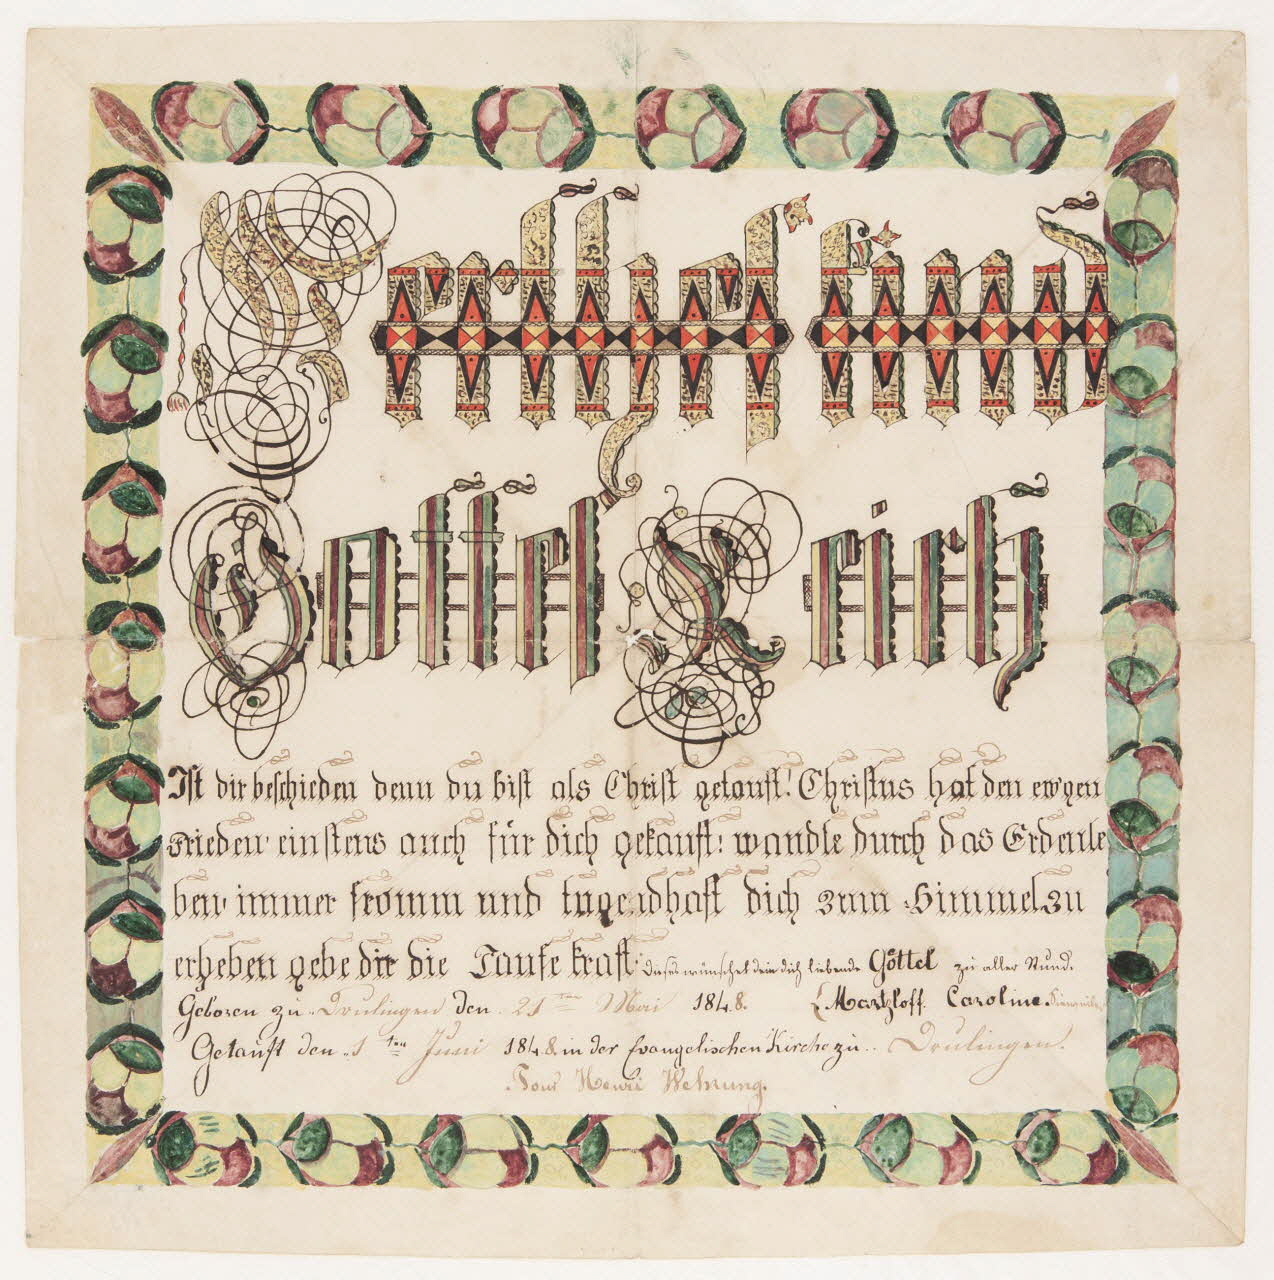 Gottes Reich
Ist dir beschieden denn du bist als Christ getauft! Christus hat den ew'gen
Frieden einstens auch für dich gekauft: wandle durch das Erdenle
ben immer fromm und tugendhaft dich zum Himmel zu
erheben gebe dir die Taufe kraft. Dieses wünschet dein dich liebende Göttel zu aller Stund.
Geboren zu Drulingen den 21ten Mai 1848. Martzloff. Caroline.
Getauft den 1ten Juni 1848 in der Evangelischen Kirche zu Drulingen.
Henri Wehrung.